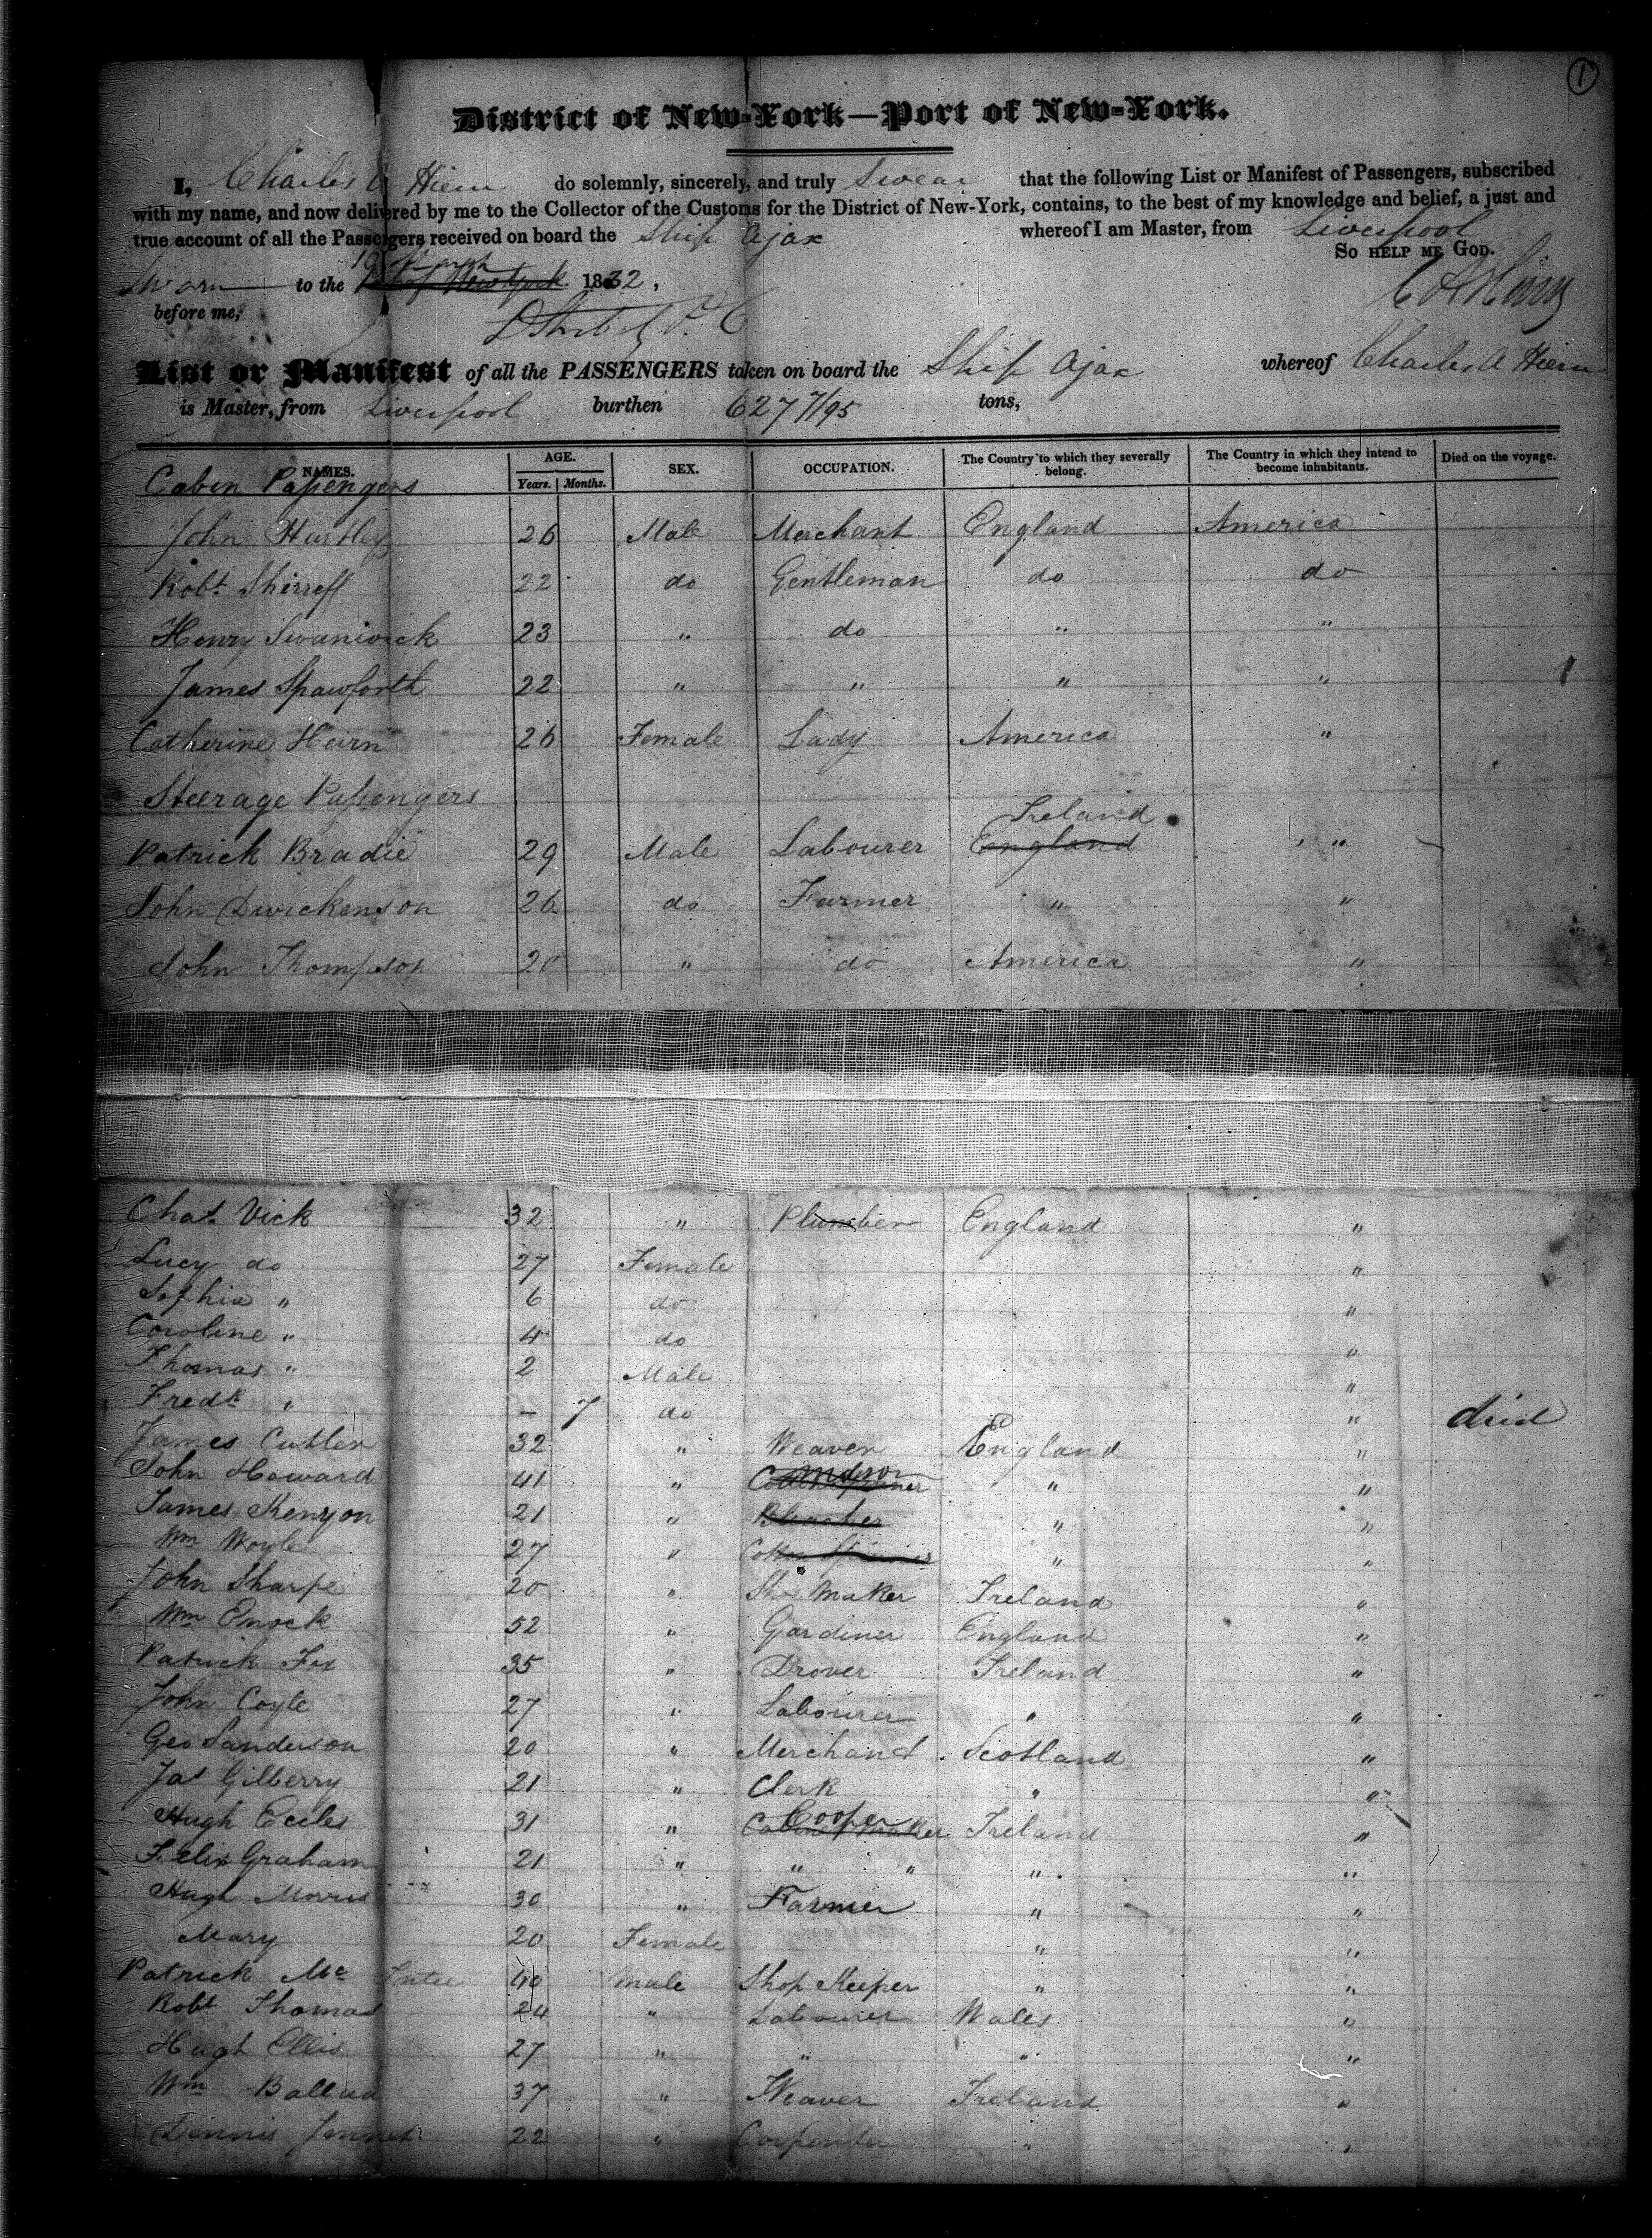 1
District of New-York—Port of New-York.
I, Charles A Hiern do solemnly, sincerely, and truly Swear that the following List or Manifest of Passengers, subscribed
with my name, and now delivered by me to the Collector of the Customs for the District of New-York, contains, to the best of my knowledge and belief, a just and
true account of all the Passengers received on board the Ship Ajax whereof I am Master, from Liverpool
So HELP ME GOD.
Sworn to the 19 March 1832.
before me,
List or Manifest of all the PASSENGERS taken on board the Ship Ajax whereof Charles A Hiern
is Master, from Liverpool burthen 627 7/95 tons,
NAMES. AGE. Years. Months. SEX. OCCUPATION. The Country to which they severally belong. The Country in which they intend to become inhabitants. Died on the voyage.
Cabin Passengers
John Hartley 26 Male Merchant England America
Robt. Shirreff 22 do Gentleman do do
Henry Swanwick 23 " do " "
James Spawforth 22 " " " "
Catherine Heirn 26 Female Lady America "
Steerage Passengers
Ireland
Patrick Bradie 29 Male Labourer England "
John Dwickenson 26 do Farmer " "
John Thompson 20 " do America "
Chas. Vick 32 " Plumber England "
Lucy do 27 Female "
Sophia " 6 do "
Caroline " 4 do "
Thomas " 2 Male "
Fredk " – 7 do " died
James Cutler 32 " Weaver England "
John Howard 41 " " "
James Kenyon 21 " Bleacher " "
Wm 27 " Cotton Spinner " "
John Sharpe 20 " Shoe Maker Ireland "
Wm Enock 52 " Gardiner England "
Patrick Fox 35 " Drover Ireland "
John Coyle 27 " Labourer " "
Geo Sanderson 20 " Merchant Scotland "
Jas Gilberry 21 " Clerk " "
Cooper
Hugh Eccles 31 " Cabinet Maker Ireland "
Felix Graham 21 " " " " "
Hugh Morris 30 " Farmer " "
Mary 20 Female " "
Patrick Mc Entee 40 Male Shop Keeper " "
Robt Thomas 24 " Labourer Wales "
Hugh Ellis 27 " " " "
Wm Ballad 37 " Weaver Ireland "
Dennis 22 " Carpenter " "